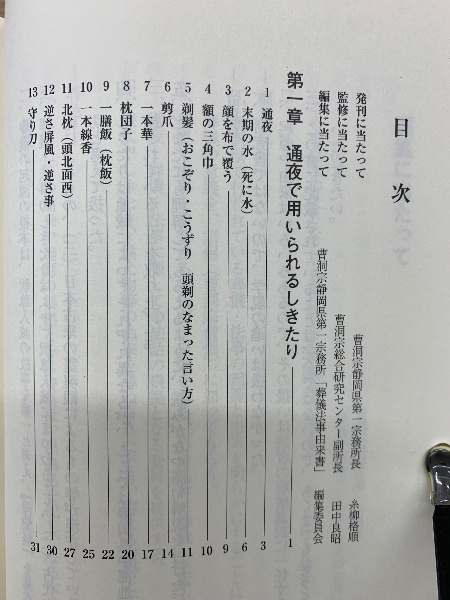 目次
発刊に当たって 曹洞宗静岡県第一宗務所長 糸柳格順
監修に当たって 曹洞宗総合研究センター副所長 田中良昭
編集に当たって 曹洞宗静岡県第一宗務所「葬儀法事由来書」編集委員会
第一章 通夜で用いられるしきたり 1
1 通夜 3
2 末期の水(死に水) 6
3 顔を布で覆う 9
4 額の三角巾 10
5 剃髪(おこぞり・こうずり 頭剃のなまった言い方) 11
6 剪爪 14
7 一本華 17
8 枕団子 20
9 一膳飯(枕飯) 22
10 一本線香 25
11 北枕(頭北面西) 27
12 逆さ屏風・逆さ事 30
13 守り刀 31